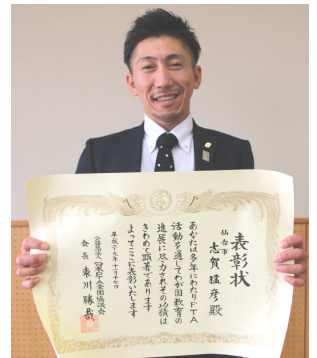 表彰状
仙台市
志賀猛彦殿
あなたは多年にわたりPTA
活動を通してわが国教育の
進展に尽力されその功績は
きわめて顕著であります
よってここに表彰いたします
平成二十九年十一月十七日
公益社団法人日本PTA全国協議会
会長 東川勝哉